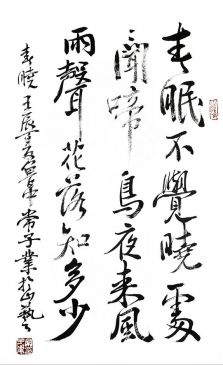 春眠不覺曉處處
聞啼鳥夜来風
雨聲花落知多少
春曉 壬辰 常子業